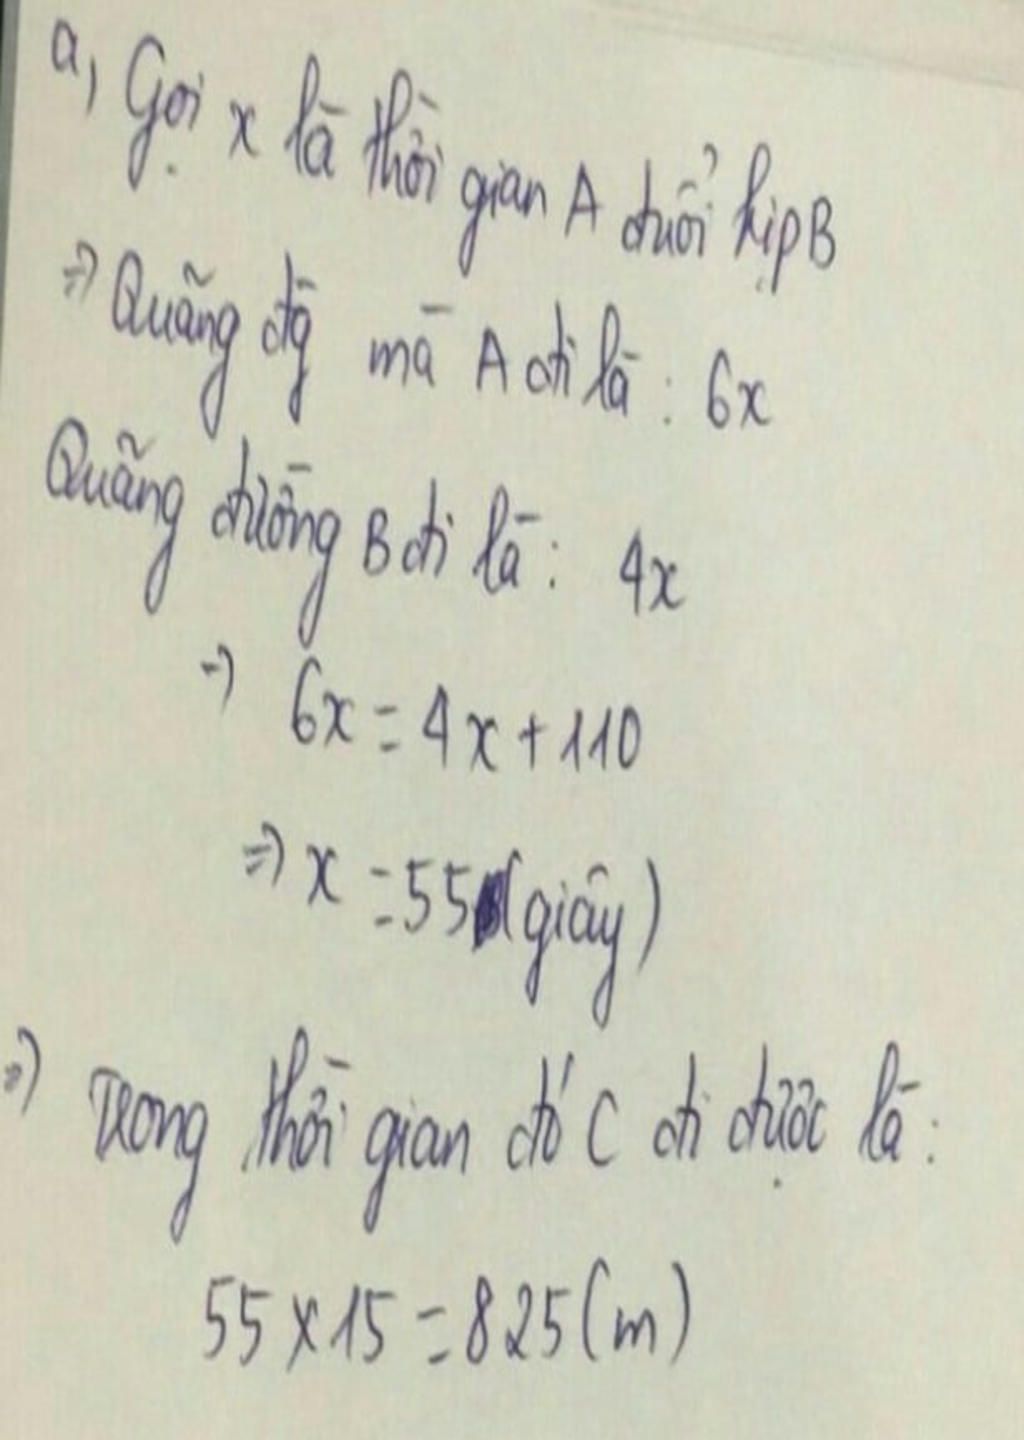 a, Gọi x là thời gian A đuổi kịp B
=> Quãng đg mà A đi là : 6x
Quãng đường B đi là : 4x
-> 6x = 4x + 110
=> x = 55 (giây)
=> Trong thời gian đó C đi được là :
55 x 15 = 825 (m)